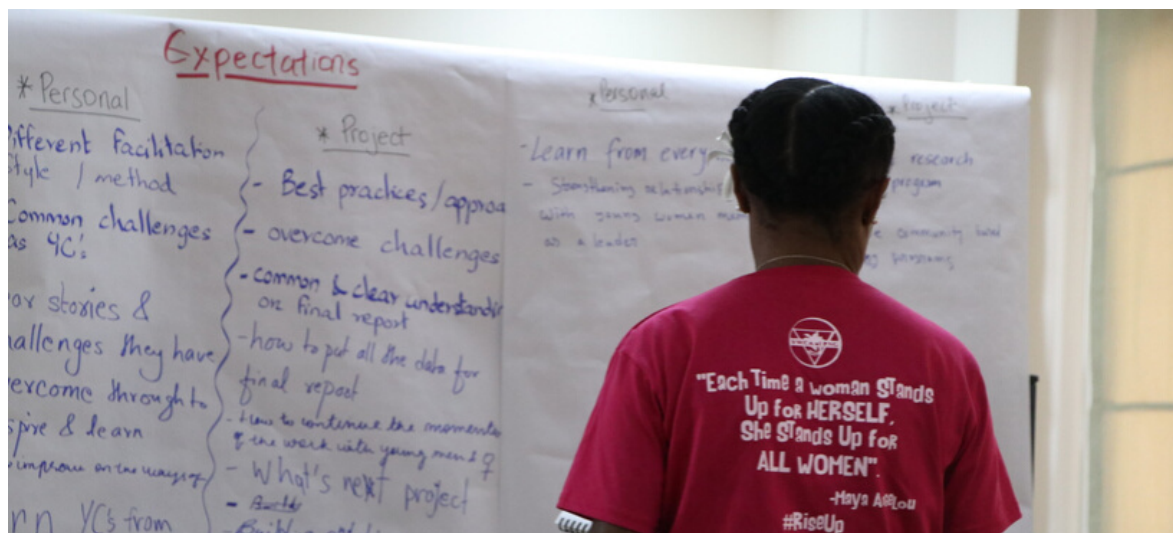 Expectations
* Personal
Different Facilitation
Style / method
Common challenges
as YC's
or stories &
hallenges they have
ercome through to
spire & learn
improve on the ways of
YCs from
* Project
- Best practices/approa
- overcome challenges
- common & clear understandi
on final report
- how to put all the data for
final report
- How to continue the moments
of the work with young men & ♀
- What's next project
* Personal
- Learn from every
- Strengthening relationship
with young women
as a leader
* Project
research
program
community based
programs
"Each Time a woman Stands
Up for HERSELF,
She Stands Up for
ALL WOMEN".
-Maya AgeLou
#RiseUp